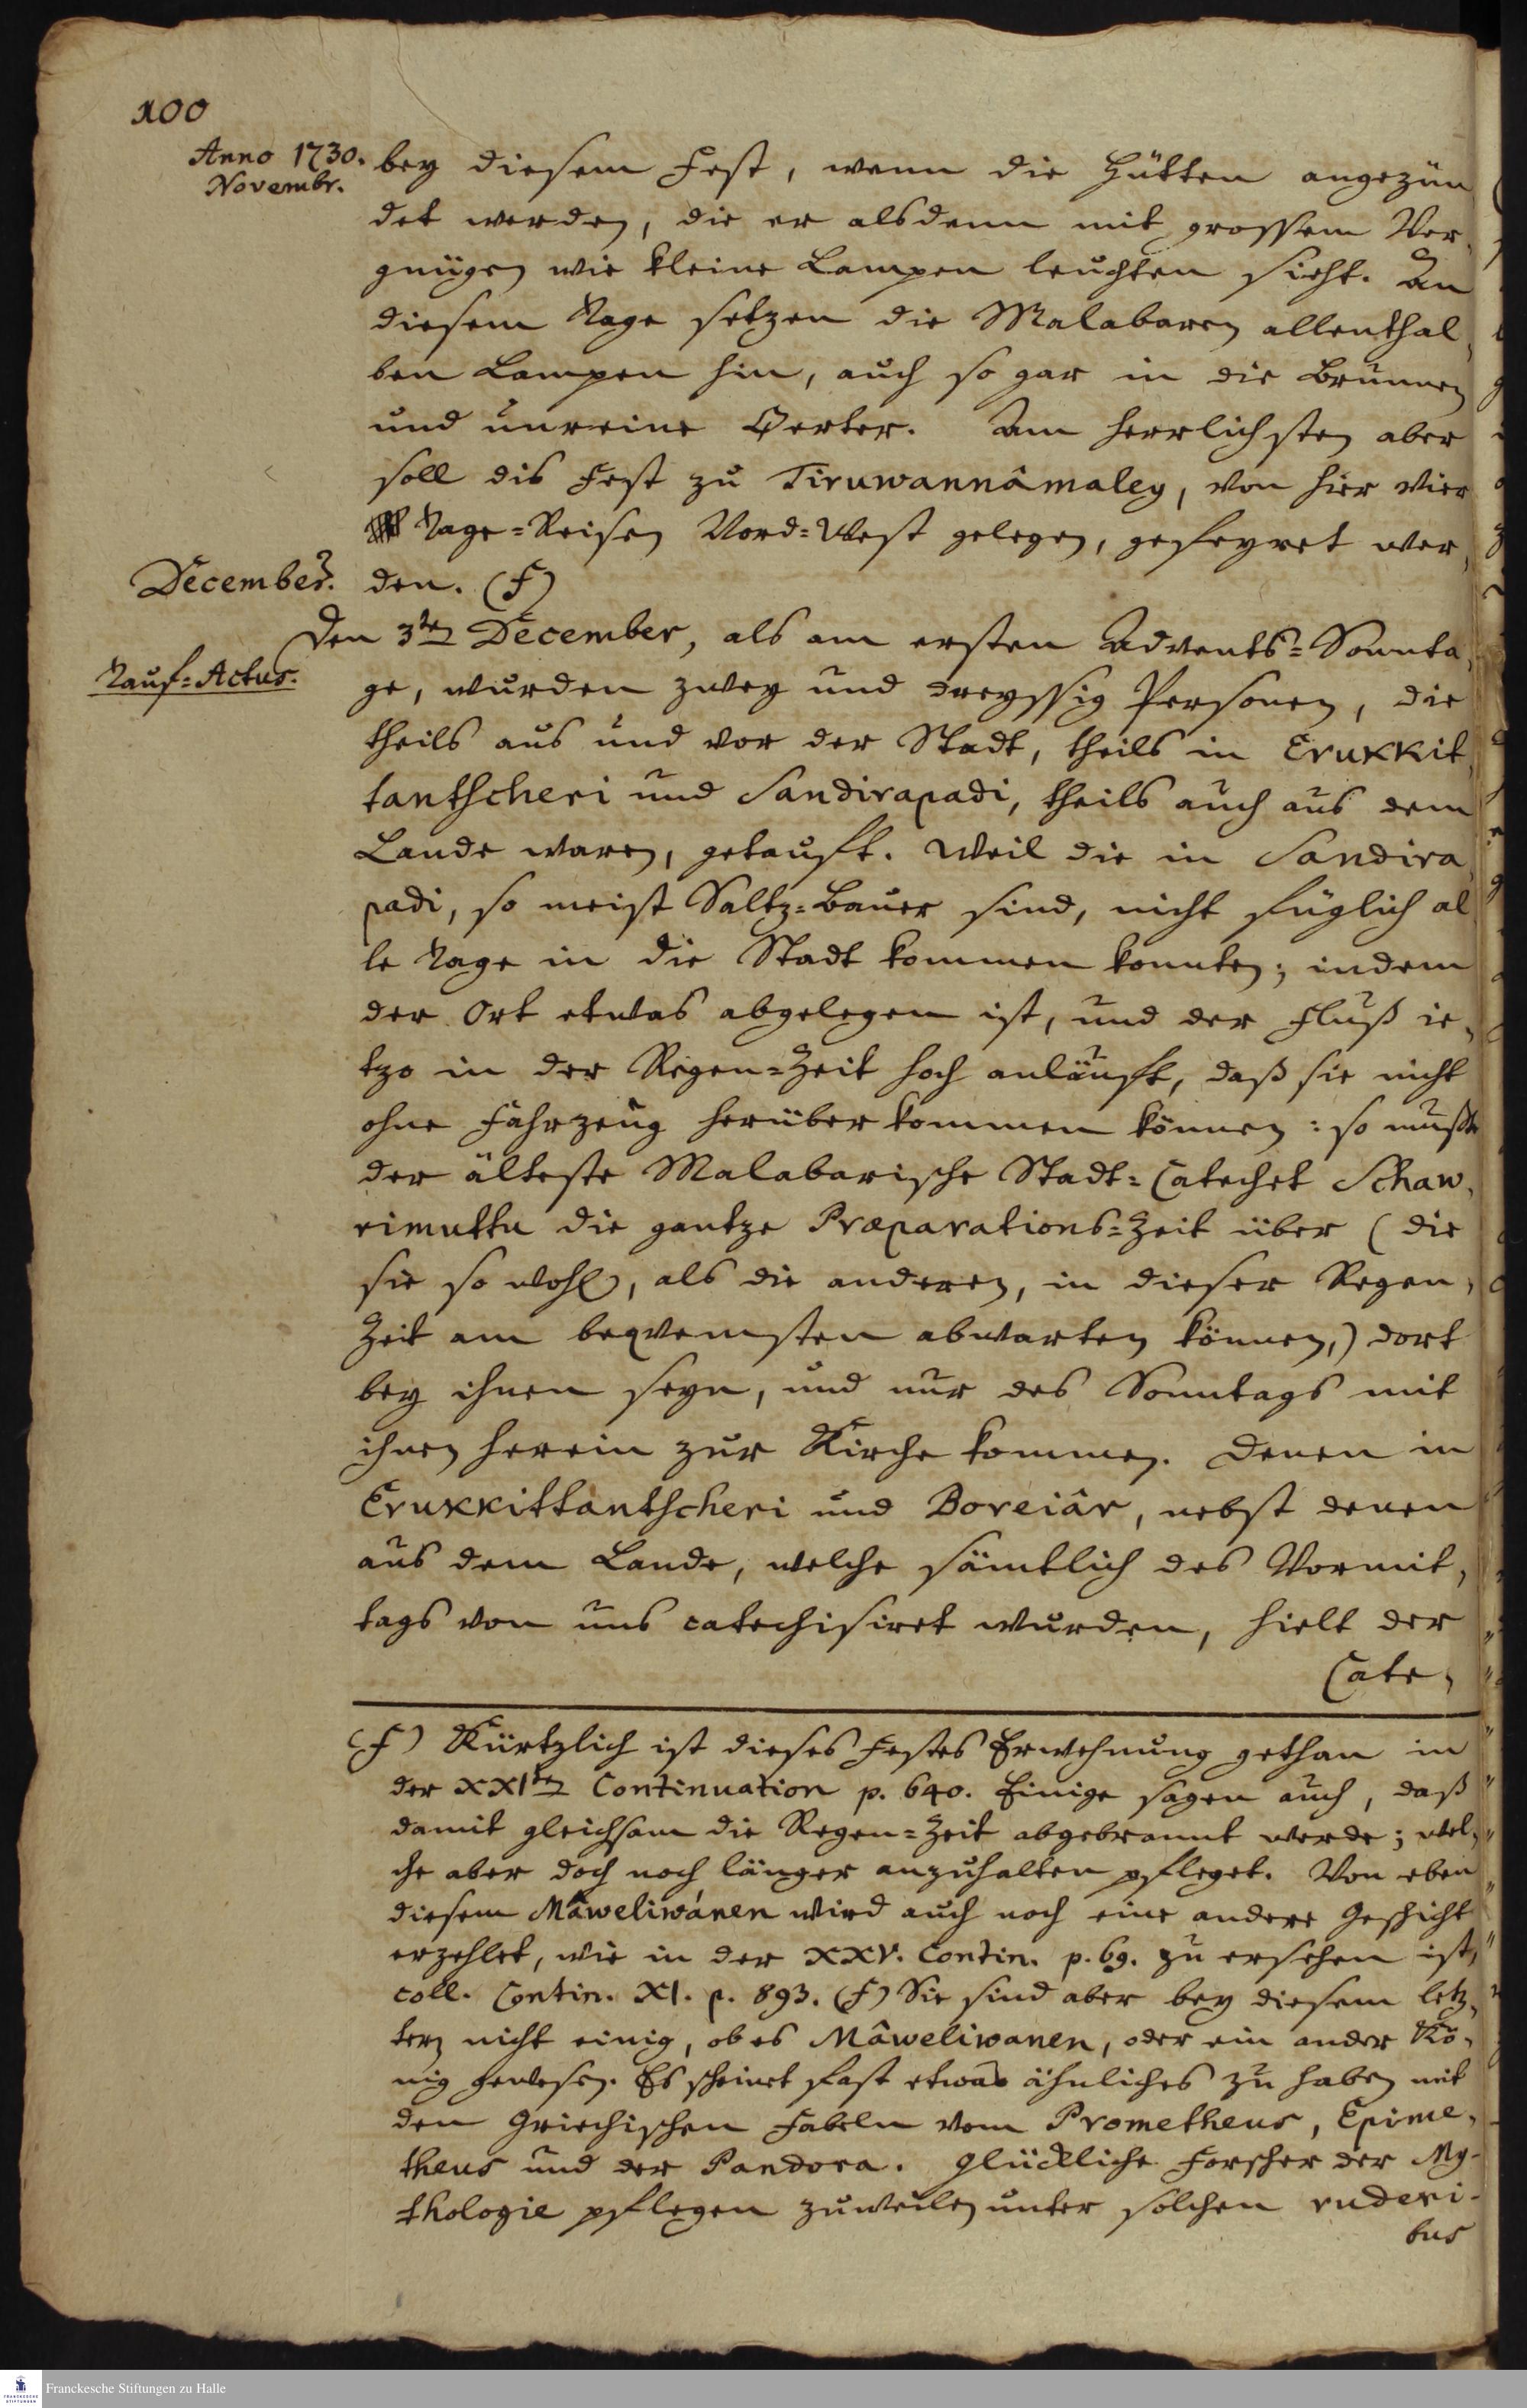 100
Anno 1730.
Novembr.
bey diesem Fest, wenn die Hütten angezün
det werden, die er alsdenn mit grossem Ver,
gnügen wie kleine Lampen leuchten sieht. An
diesem Tage setzen die Malabaren allenthal,
ben Lampen hin, auch so gar in die Brunnen
und unreine Oerter. Am herrlichsten aber
soll dis Fest zu Tiruwannâmaley, von hier vier
Tage=Reisen Nord=West gelegen, gefeyret wer,
December.
den. (f)
Den 3ten December, als am ersten Advents=Sonnta,
Tauf=Actus.
ge, wurden zwey und dreyssig Personen, die
theils aus und vor der Stadt, theils in Erukkit,
tantscheri und Sandirapadi, theils auch aus dem
Lande waren, getauft. Weil die in Sandira,
padi, so meist Saltz=Bauer sind, nicht füglich al
le Tage in die Stadt kommen konnten; indem
der Ort etwas abgelegen ist, und der Fluß ie,
tzo in der Regen=Zeit hoch anläuft, daß sie nicht
ohne Fahrzeug herüber kommen können: so mußte
der älteste Malabarische Stadt=Catechet Schaw,
rimuttu die gantze Præparations=Zeit über (die
sie so wohl, als die anderen, in dieser Regen,
Zeit am beqvemsten abwarten können,) dort
bey ihnen seyn, und nur des Sonntags mit
ihnen herein zur Kirche kommen. Denen in
Erukkittantscheri und Boreiâr, nebst denen
aus dem Lande, welche sämtlich des Vormit,
tags von uns catechisiret wurden, hielt der
Cate,
(f) Kürtzlich ist dieses Festes Erwehnung gethan in
der XXIten Continuation p. 640. Einige sagen auch, daß
damit gleichsam die Regen=Zeit abgebrannt werde; wel,
che aber doch noch länger anzuhalten pfleget. Von eben
diesem Mâweliwánen wird auch noch eine andere Geschicht
erzehlet, wie in der XXV. Contin. p. 69. zu ersehen ist,
coll. Contin. XI. p. 893. (f) Sie sind aber bey diesem letz,
tern nicht einig, ob es Mâweliwanen, oder ein ander Kö,
nig gewesen. Es scheinet fast etwas ähnliches zu haben mit
den Griechischen Fabeln vom Prometheus, Epime,
theus und der Pandora. Glückliche Forscher der My-
thologie pflegen zuweilen unter solchen ruderi-
bus
Franckesche Stiftungen zu Halle